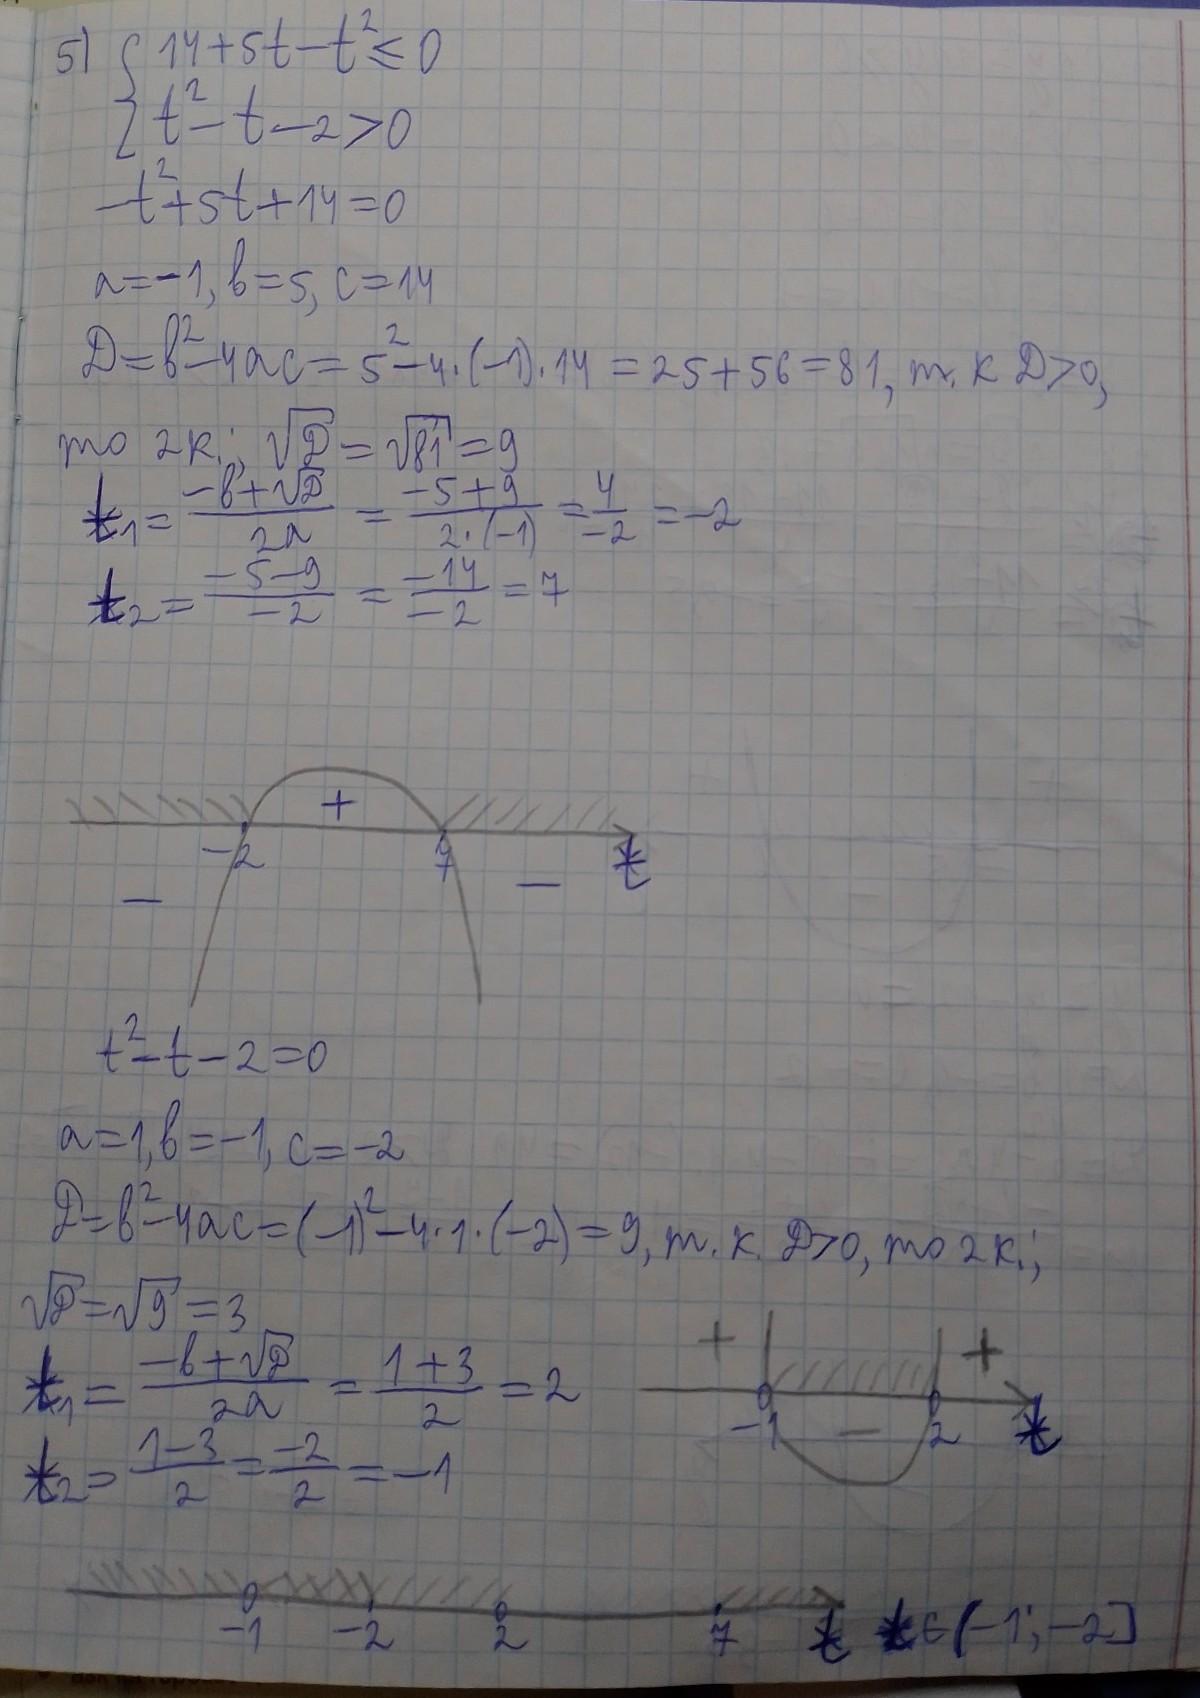 5) { 14+5t-t²≤0
t²-t-2>0
-t²+5t+14=0
a=-1, b=5, c=14
D=b²-4ac=5²-4·(-1)·14=25+56=81, т.к D>0,
то 2к.; √D=√81=9
t₁=(-b+√D)/(2a)=(-5+9)/(2·(-1))=4/(-2)=-2
t₂=(-5-9)/(-2)=(-14)/(-2)=7
+
-2 7 t
- -
t²-t-2=0
a=1, b=-1, c=-2
D=b²-4ac=(-1)²-4·1·(-2)=9, т.к. D>0, то 2к.;
√D=√9=3
t₁=(-b+√D)/(2a)=(1+3)/2=2
+ +
-1 - 2 t
t₂=(1-3)/2=(-2)/2=-1
-1 -2 2 7 t t∈(-1;-2]